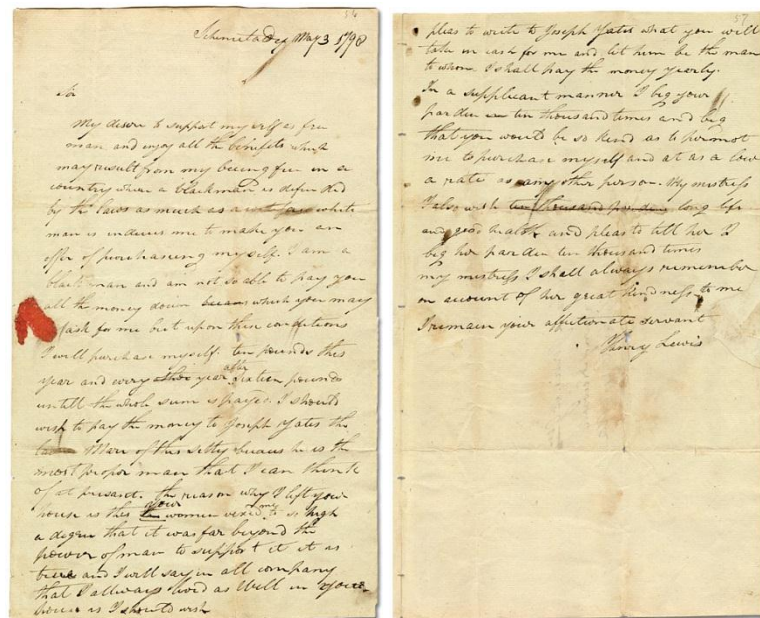 54
Schenectaday May 3 1798
Sir
My desire to support my self as free
man and enjoy all the benefits which
may result from my being free in a
country where a blackman is defended
by the laws as much as a white
man is induces me to make you an
offer of purchasing myself. I am a
black man and am not so able to pay you
all the money down which you may
ask for me but upon these conditions
I will purchase myself. ten pounds this
year and every year after sixteen pounds
untill the whole sum is payed. I should
wish to pay the money to Joseph Yates the
Mare of this sitty becaus he is the
most proper man that I can think
of at present. the reason why I left your
house is this your women vexed me to so high
a degree that it was far beyond the
power of man to support it it is
true and I will say in all company
that I allways lived as well in your
house as I should wish
57
pleas to write to Joseph Yates what you will
take in cash for me and let him be the man
to whom I shall pay the money yearly.
In a supplicant manner I beg your
parden ten thousand times and beg
that you would be so kind as to permit
me to purchase myself and at as a low
a rate as any other person. My mistress
I also wish ten thousand parden long life
and good health and pleas to tell her I
beg her parden ten thousand times
my mistress I shall always remember
on account of her great kindness to me
I remain your affectionate servant
Yarry Lewis